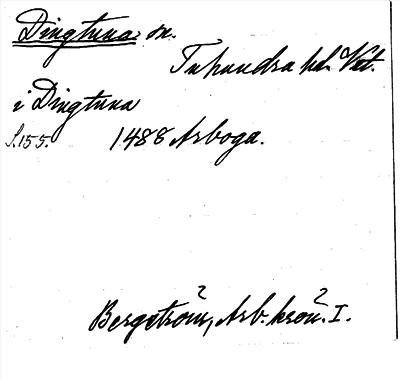 Dingtuna sn.
Tuhundra hd. Vstm.
i Dingtuna
S.155. 1488 Arboga.
Bergström, Arb. krön. I.